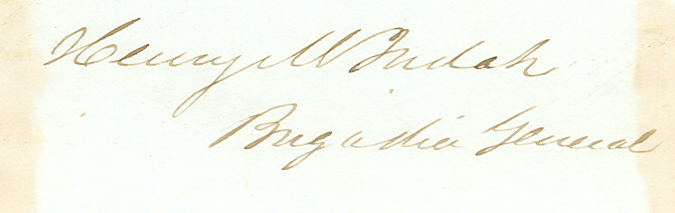 Henry M Judah
Brigadier General